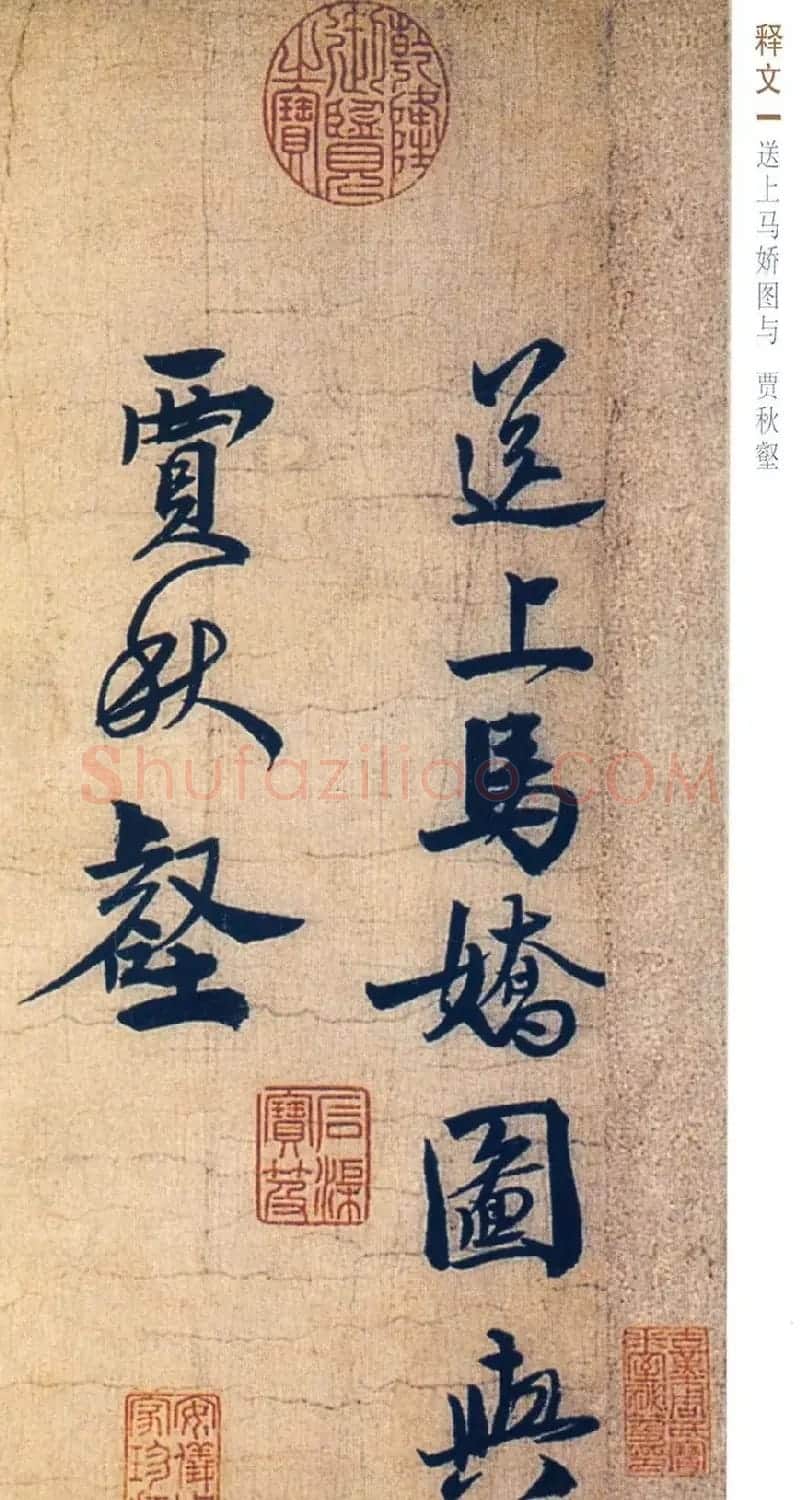 释文 送上马娇图与 贾秋壑
乾隆
御覽
之寶
送上馬嬌圖與
賈秋壑
石渠
寶笈
安儀
家珍
Shufaziliao.COM